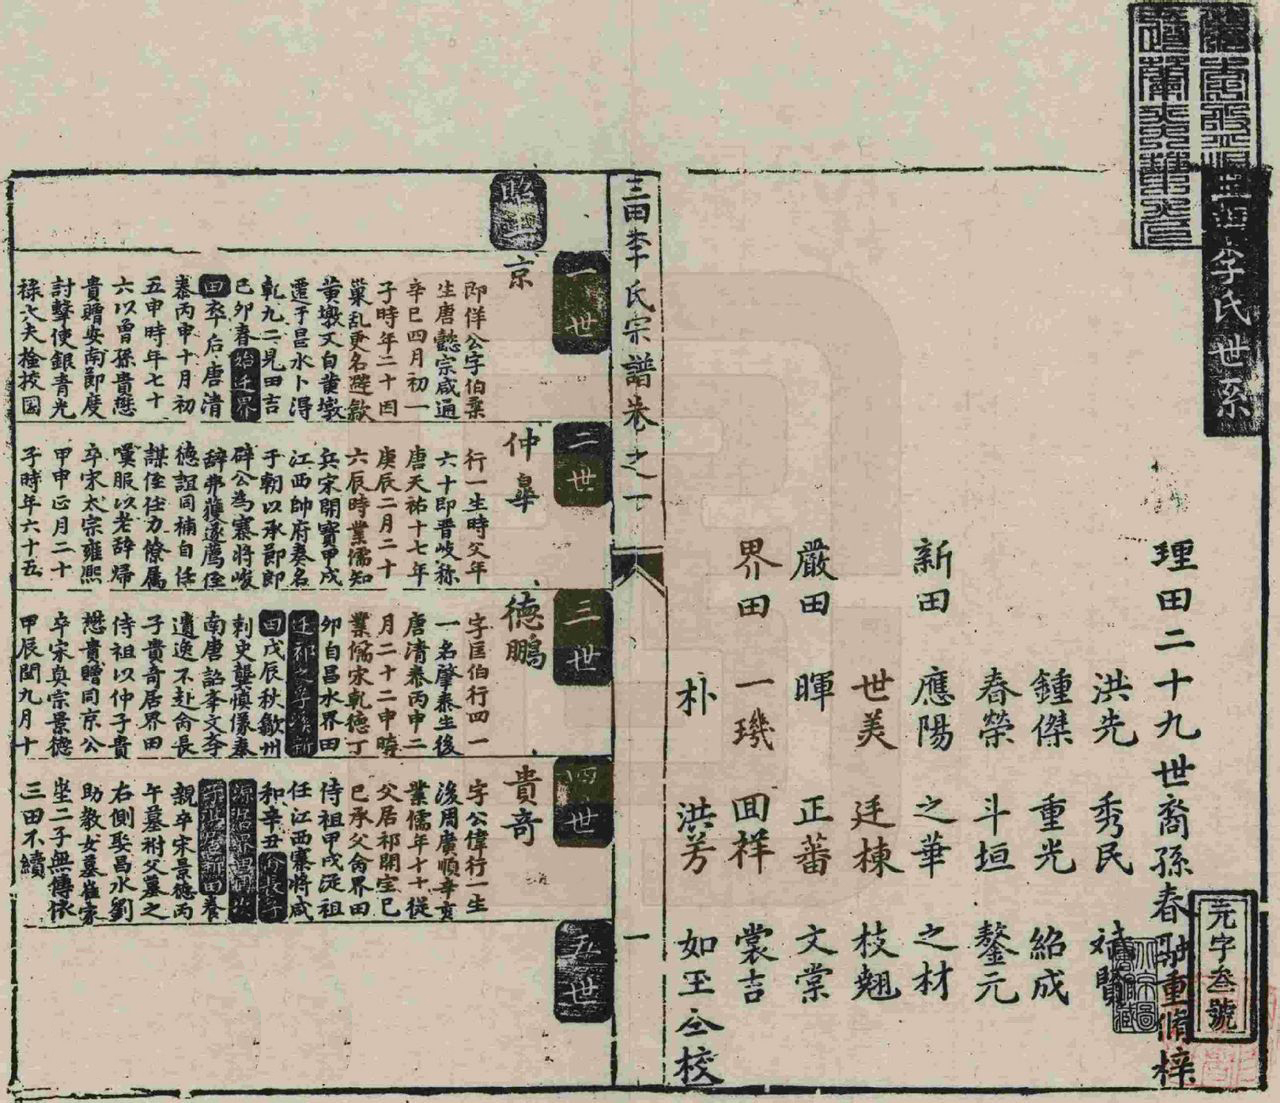 三田李氏世系
元字叁號
理田二十九世裔孫春馿重脩梓
洪先 秀民
鍾傑 重光 紹成
春榮 斗垣 鏊元
新田 應陽 之華 之材
世美 廷棟 枝翹
嚴田 暉 正蕃 文棠
界田 一璣 囬祥 裳吉
朴 洪芳 如玉 仝校
三田李氏宗譜卷之一
一
一世
京
即佯公字伯奡
生唐懿宗咸通
辛巳四月初一
子時年二十四因
巢亂更名避歙
黄墩又自黄墩
遷于昌水卜得
乾九二見田吉
已卯春始迁界
田卒后唐清
泰丙申十月初
五申時年七十
六以曾孫貴懋
貴贈安南節度
討擊使銀青光
祿大夫檢挍國
二世
仲臯
行一生時父年
六十即晋岐称
唐天祐十七年
庚辰二月二十
六辰時業儒知
兵宋開寶甲戌
江西帥府奏名
于朝以承節郎
辟公為寨將峻
辞弗獲遂薦侄
德誼同補自任
謀侄任力僚属
嘆服以老辞歸
卒宋太宗雍熙
甲申正月二十
子時年六十五
三世
德鵬
字匡伯行四一
一名肇泰生後
唐清泰丙申二
月二十二申時
業儒宋乾德丁
卯自昌水界田
田戊辰秋歙州
刺史龔慎儀奏
南唐詔孝文孝
遺逸不赴侖長
子貴竒居界田
侍祖以仲子貴
懋貴贈同京公
卒宋真宗景德
甲辰閏九月十
四世
貴竒
字公偉行一生
後周廣順辛亥
業儒年十七從
父居祁開宝已
巳承父侖界田
侍祖甲戌從祖
任江西寨將咸
和辛丑
親卒宋景德丙
午墓祔父墓之
右側娶昌水劉
助教女墓崔家
坐二子無傳依
三田不續
五世